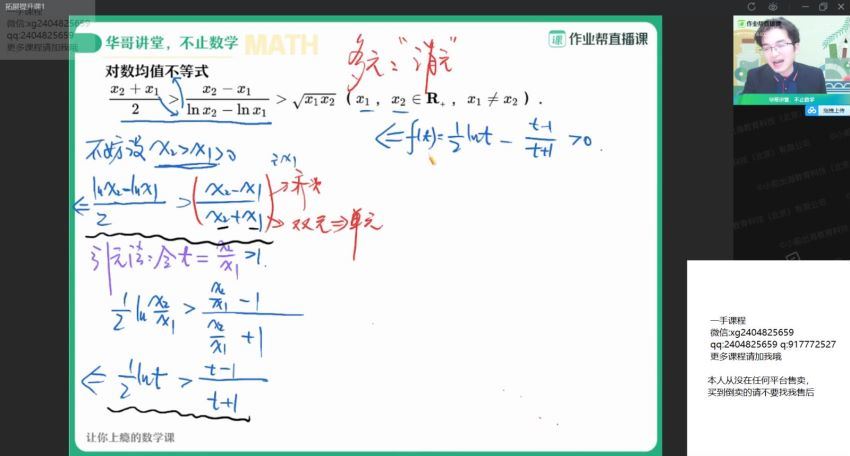 拓展提升课1
一手课程
微信:xg2404825659
qq:2404825659
更多课程请加我哦
华哥讲堂，不止数学
MATH
作业帮直播课
对数均值不等式
(x₂ + x₁)/2 > (x₂ − x₁)/(ln x₂ − ln x₁) > √(x₁x₂) (x₁, x₂ ∈ R₊, x₁ ≠ x₂).
多元："消元"
⇐ f(t) = 1/2 lnt − (t−1)/(t+1) > 0.
不妨设 x₂ > x₁ > 0
÷x₁
⇐ (lnx₂ − lnx₁)/2 > ((x₂ − x₁)/(x₂ + x₁))
→ 齐次
→ 双元 ⇒ 单元
引元法：令 t = x₂/x₁ > 1.
1/2 ln x₂/x₁ > (x₂/x₁ − 1)/(x₂/x₁ + 1)
⇐ 1/2 lnt > (t−1)/(t+1)
让你上瘾的数学课
华哥讲堂，不止数学
拖拽上传
一手课程
微信:xg2404825659
qq:2404825659 q:917772527
更多课程请加我哦
本人从没在任何平台售卖，
买到倒卖的请不要找我售后